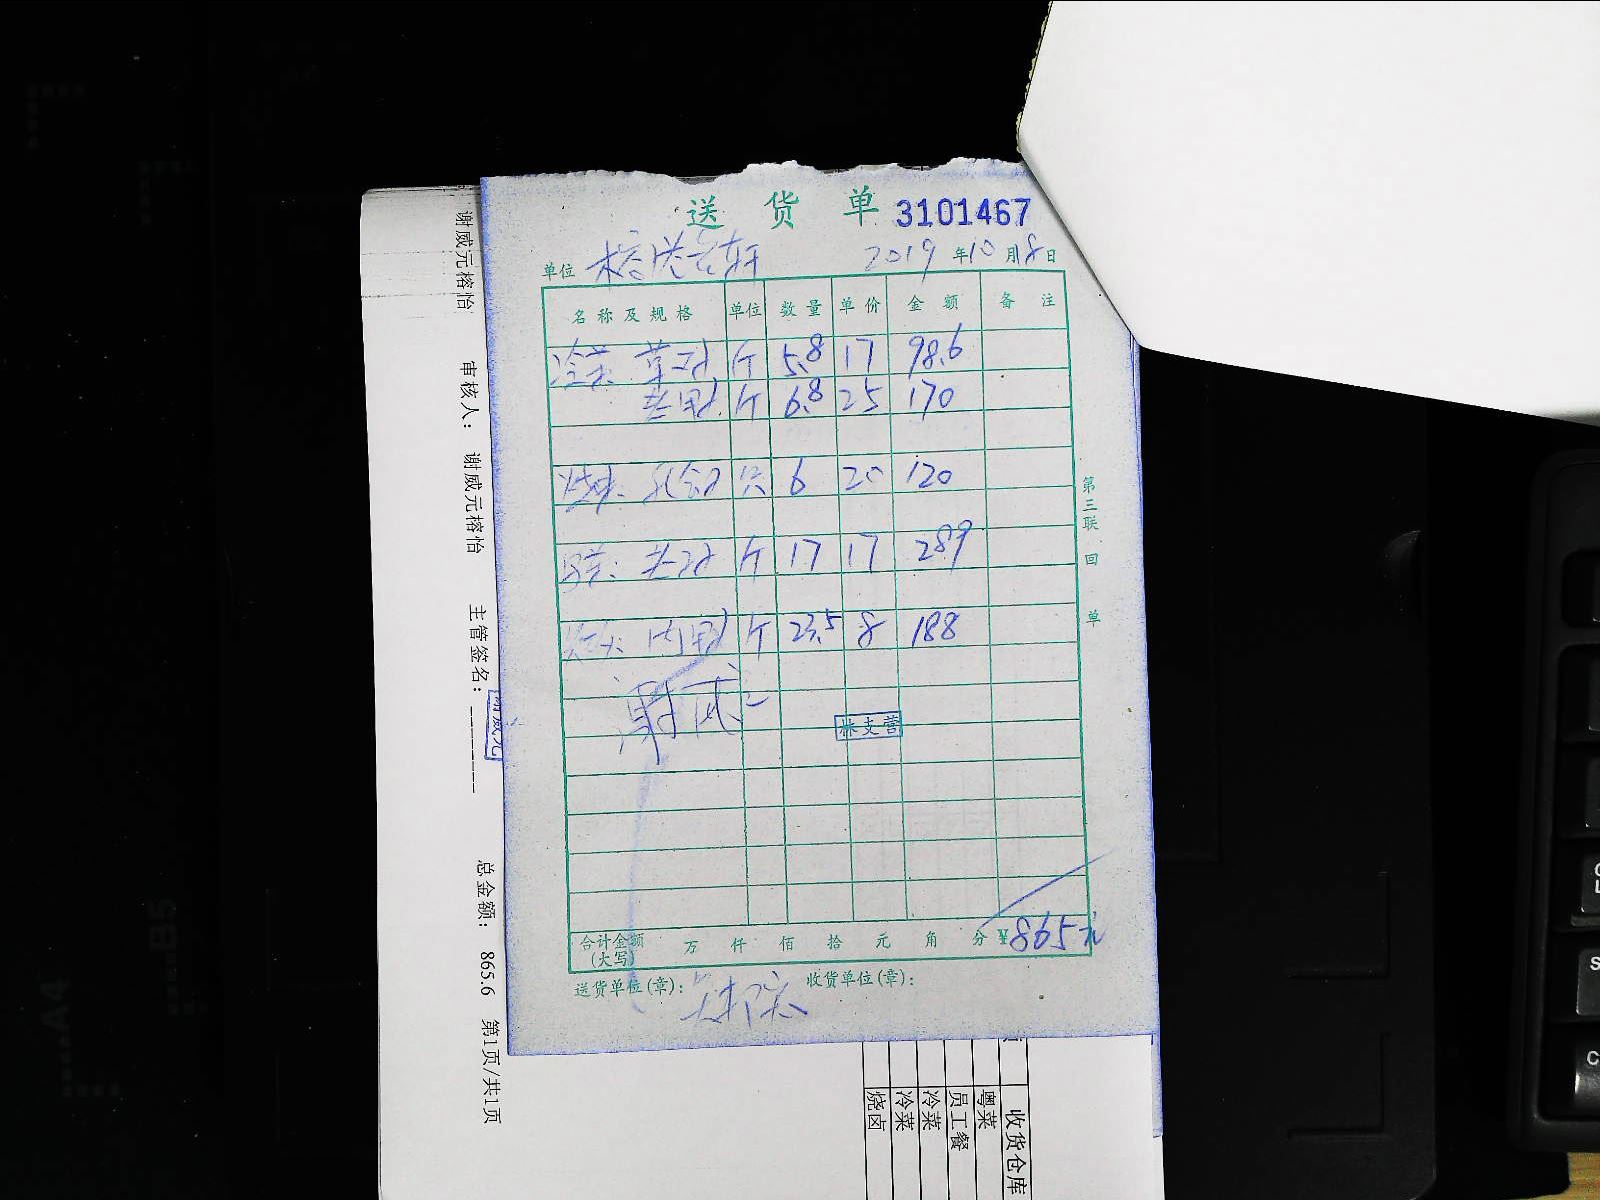 送货单 3101467
单位 2019年10月18日
名称及规格 单位 数量 单价 金额 备注
冷菜: 斤 5.8 17 98.6
斤 6.8 25 170
只 6 20 120
斤 17 17 289
斤 23.5 8 188
林支营
合计金额(大写) 万 仟 佰 拾 元 角 分 ¥865元
送货单位(章): 收货单位(章):
第三联 回单
谢威元榕怡 审核人: 谢威元榕怡 主管签名: ________ 总金额: 865.6 第1页/共1页
谢威元
收货仓库
粤菜
员工餐
冷菜
冷菜
烧卤